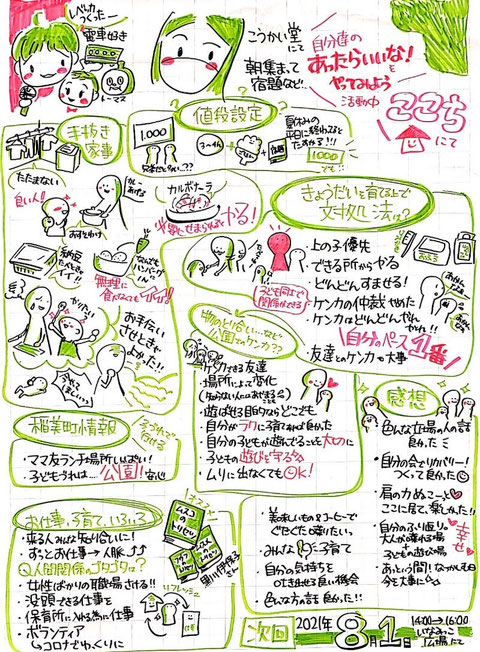 レベッカつくったー
電車好き
トーマス
こうかい堂にて
朝集まって
宿題など…
自分達の
あったらいいな!を
やってみよう
活動中
ここち
にて
手抜き
家事
たたまない
良い人!
値段設定
1.000
3〜4h
宿題
夏休みの
平日に終わってると
たすかる!!!
1.000
でも!
カルボナーラ
やる!
無理に
食べなくてもイイ!!
お手伝い
させときゃ
よかった!!
きょうだいを育てる上で
対処法は?
・上の子優先
・できる所からやる
・どんどんすませる!
・ケンカの仲裁やめた
・ケンカはどんどんやれ
やれ!!
自分のペース1番
・友達とのケンカも大事
子ども同士で
関係ができる
物のとり合い…など
公園でのケンカ??
・ケンカできる友達
・場所によって変化
(知らない人にはあやまること)
・遊ばせる目的ならどこでも
・自分がラクに子育てすれば良かった
・自分の子どもが遊んでることを大切に
・子どもの遊びを守る
・ムリに出なくてもOK!
桜美町情報
・ママ友ランチ場所いっぱい!
・子どもうれは……公園!安心
お仕事、子育て、いろいろ
・来る人みんな知り合いに!
・ずっとお仕事→人脈
Q人間関係のゴタゴタは?
・女性ばかりの職場さける!!
・没頭できる仕事を
・保育所に入れる為に仕事
・ボランティア
→コロナでゆっくりに
リフレッシュ
オススメ
ムスコの
トリセツ
黒川伊保子
さん
感想
・色んな立場の人の話
良かった
・自分の会でリカバリー!
つくって良かった
・肩の力ぬこーと
ここに居て楽しかった!!
・自分のふり返り。
大人が喋れる場
子どもの遊び場
幸せ
・あっという間!なつかしむ日
今を大事に
・美味しいもの&コーヒーで
ぐだぐだ喋りたい。
・みんなに子育て
・自分の気持ちを
吐き出せる良い機会
・色んな方の話良かった!!
次回
2021年
8月1日
14:00→16:00
いなみっこ
広場にて